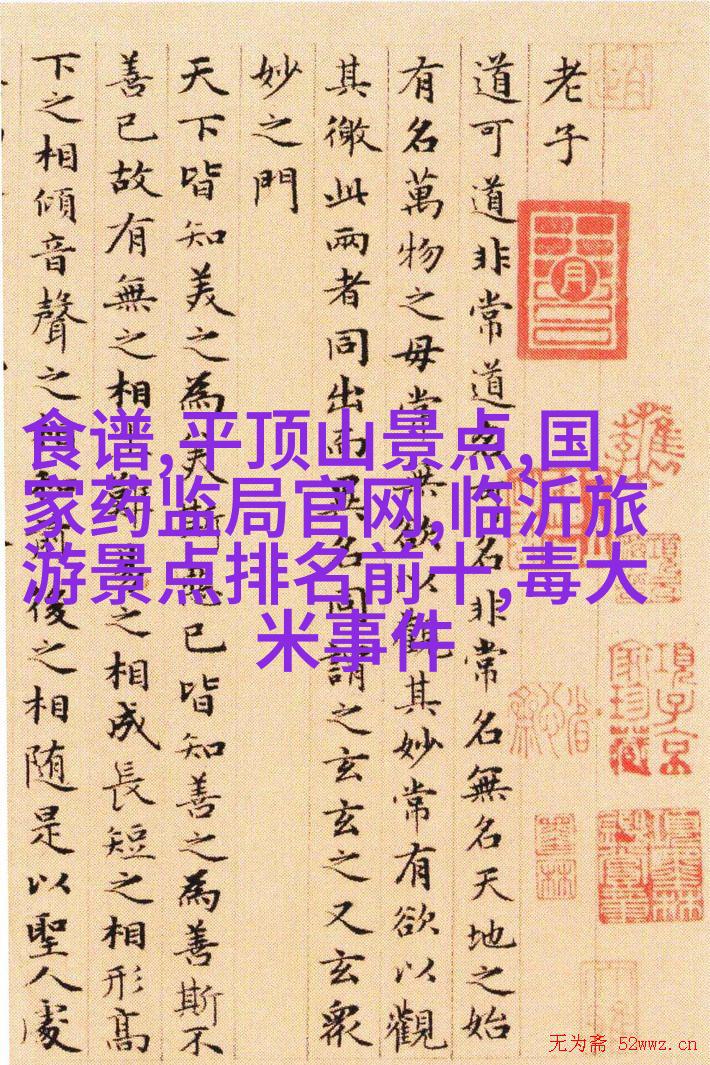 老子
道可道非常道名可名非常名無名天地之始
有名萬物之母常無欲以觀其妙常有欲以觀
其徼此兩者同出而異名同謂之玄玄之又玄眾
妙之門
天下皆知美之為美斯惡已皆知善之為善斯不
善已故有無之相生難易之相成長短之相形高
下之相傾音聲之相和前後之相随是以聖人處
食谱,平顶山景点,国
家药监局官网,临沂旅
游景点排名前十,毒大
米事件
項子京
家珍藏
无为斋 52wwz.cn